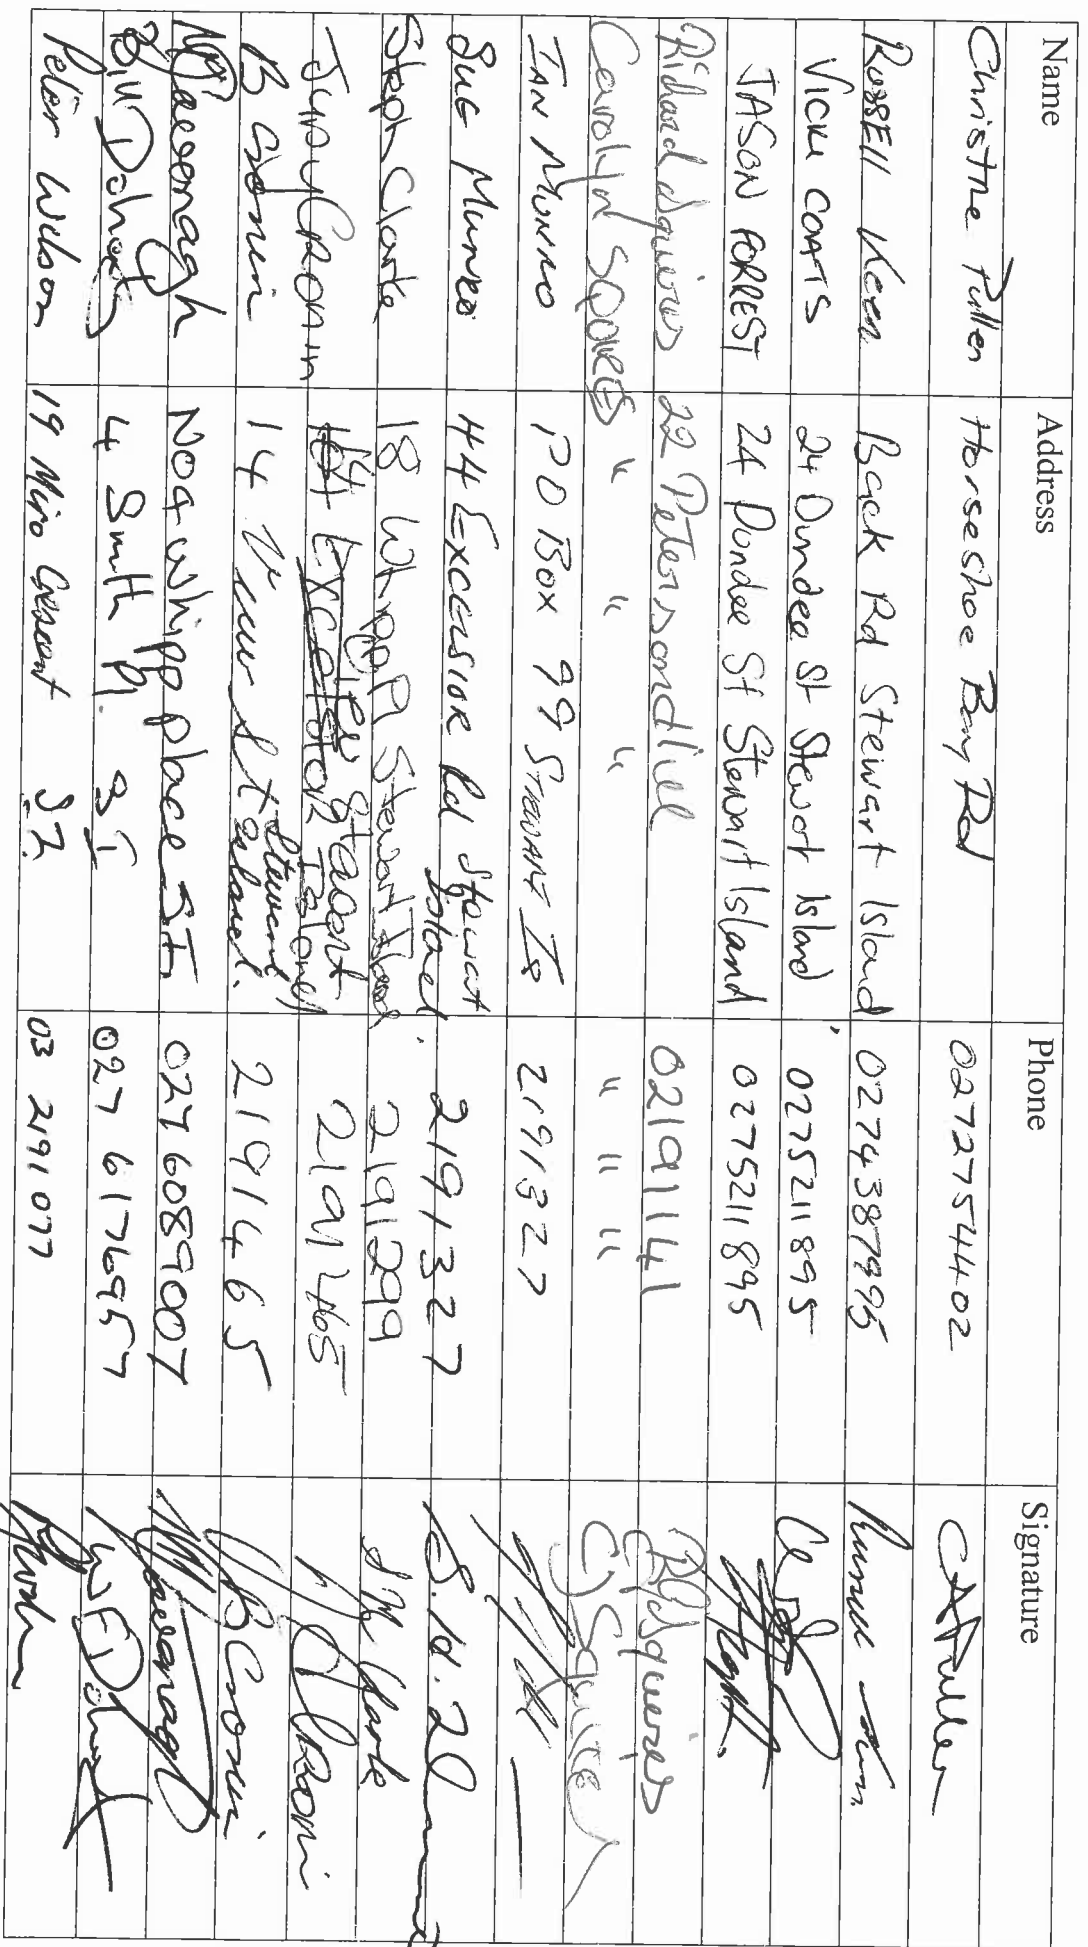 Name Address Phone Signature
Christine Pullen Horseshoe Bay Rd 0272754402 CAPullen
RUSSEll Keen Back Rd Stewart Island 0274387996
VICKI COATS 24 Dundee St Stewart Island 0275211895
JASON FORREST 24 Dundee St Stewart Island 0275211895
Richard Squires 22 Petersondliel 02191141 Squires
Carolyn SQUIRES " " " " " " CJ Squires
IAN MUNRO PO Box 99 STEWART Is 2191327
SUE Munro 44 EXCELSIOR Rd Stewart Island 2191327
Steph Clarke 18 Whipp Pl Stewart Island 2191299 Clarke
Judy CRONIN 14 View St Stewart Island 2191465 CRonin
B Cronin 14 View St Stewart Island. 2191465 B Cronin
No 4 whipp place SI 0276089007
Bill Doherty 4 Smith Pl. SI 027 6176957 W F Doherty
Peter Wilson 19 Miro Cresent S.I. 03 2191 077